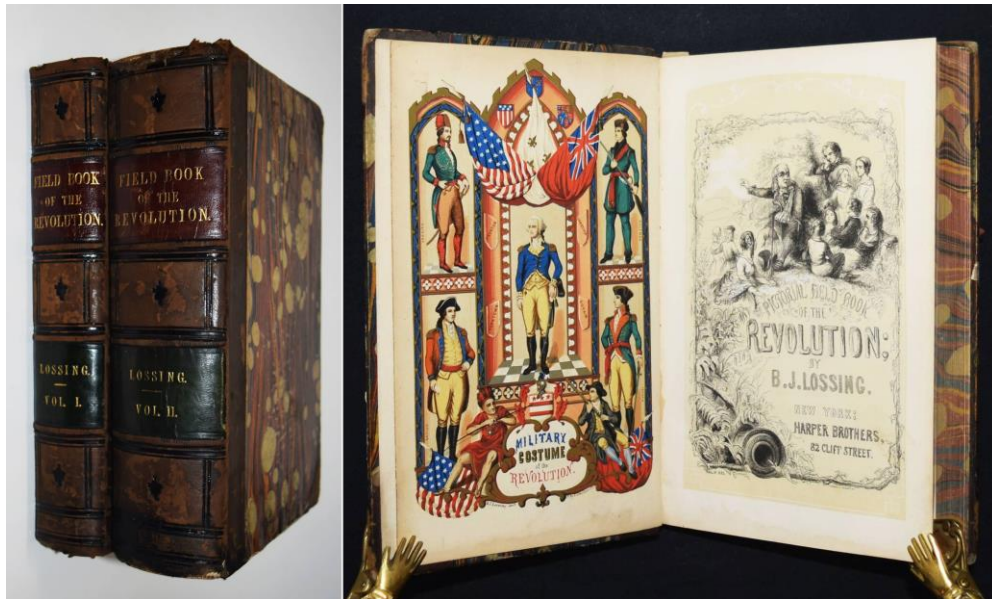 FIELD BOOK
OF THE
REVOLUTION.
LOSSING.
VOL. I.
FIELD BOOK
OF THE
REVOLUTION.
LOSSING.
VOL. II.
MILITARY
COSTUME
of the
REVOLUTION.
PICTORIAL FIELD BOOK
OF THE
REVOLUTION;
BY
B.J.LOSSING.
NEW YORK:
HARPER BROTHERS,
82 CLIFF STREET.